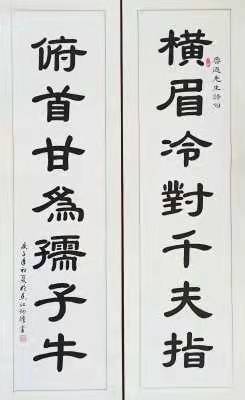 橫眉冷對千夫指
魯迅先生詩句
俯首甘爲孺子牛
庚子年初夏於江書